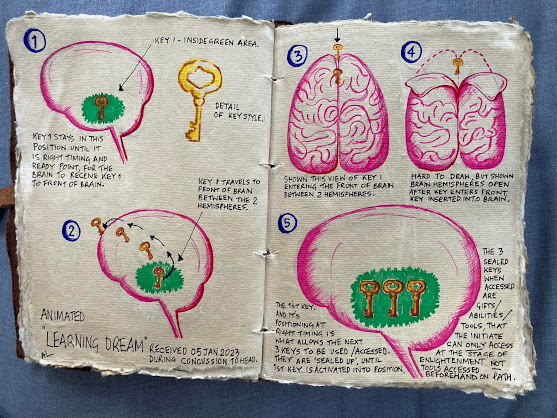 1
KEY 1 - INSIDE GREEN AREA.
DETAIL
OF
KEY STYLE.
KEY 1 STAYS IN THIS
POSITION UNTIL IT
IS RIGHT TIMING AND
READY POINT, FOR THE
BRAIN TO RECEIVE KEY 1
TO FRONT OF BRAIN.
2
KEY 1 TRAVELS TO
FRONT OF BRAIN
BETWEEN THE 2
HEMISPHERES.
ANIMATED
"LEARNING DREAM" RECEIVED 05 JAN 2023
DURING CONCUSSION TO HEAD.
3
SHOWN THIS VIEW OF KEY 1
ENTERING THE FRONT OF BRAIN
BETWEEN 2 HEMISPHERES.
4
HARD TO DRAW, BUT SHOWN
BRAIN HEMISPHERES OPEN
AFTER KEY ENTERS FRONT.
KEY INSERTED INTO BRAIN.
5
THE 1ST KEY.
AND IT'S
POSITIONING AT
RIGHT TIMING IS
WHAT ALLOWS THE NEXT
3 KEYS TO BE USED / ACCESSED.
THEY ARE 'SEALED UP', UNTIL
1ST KEY IS ACTIVATED INTO POSITION.
THE 3
SEALED
KEYS
WHEN
ACCESSED
ARE
GIFTS/
ABILITIES/
TOOLS, THAT
THE INITIATE
CAN ONLY ACCESS
AT THE STAGE OF
ENLIGHTENMENT NOT
TOOLS ACCESSED
BEFOREHAND ON PATH.